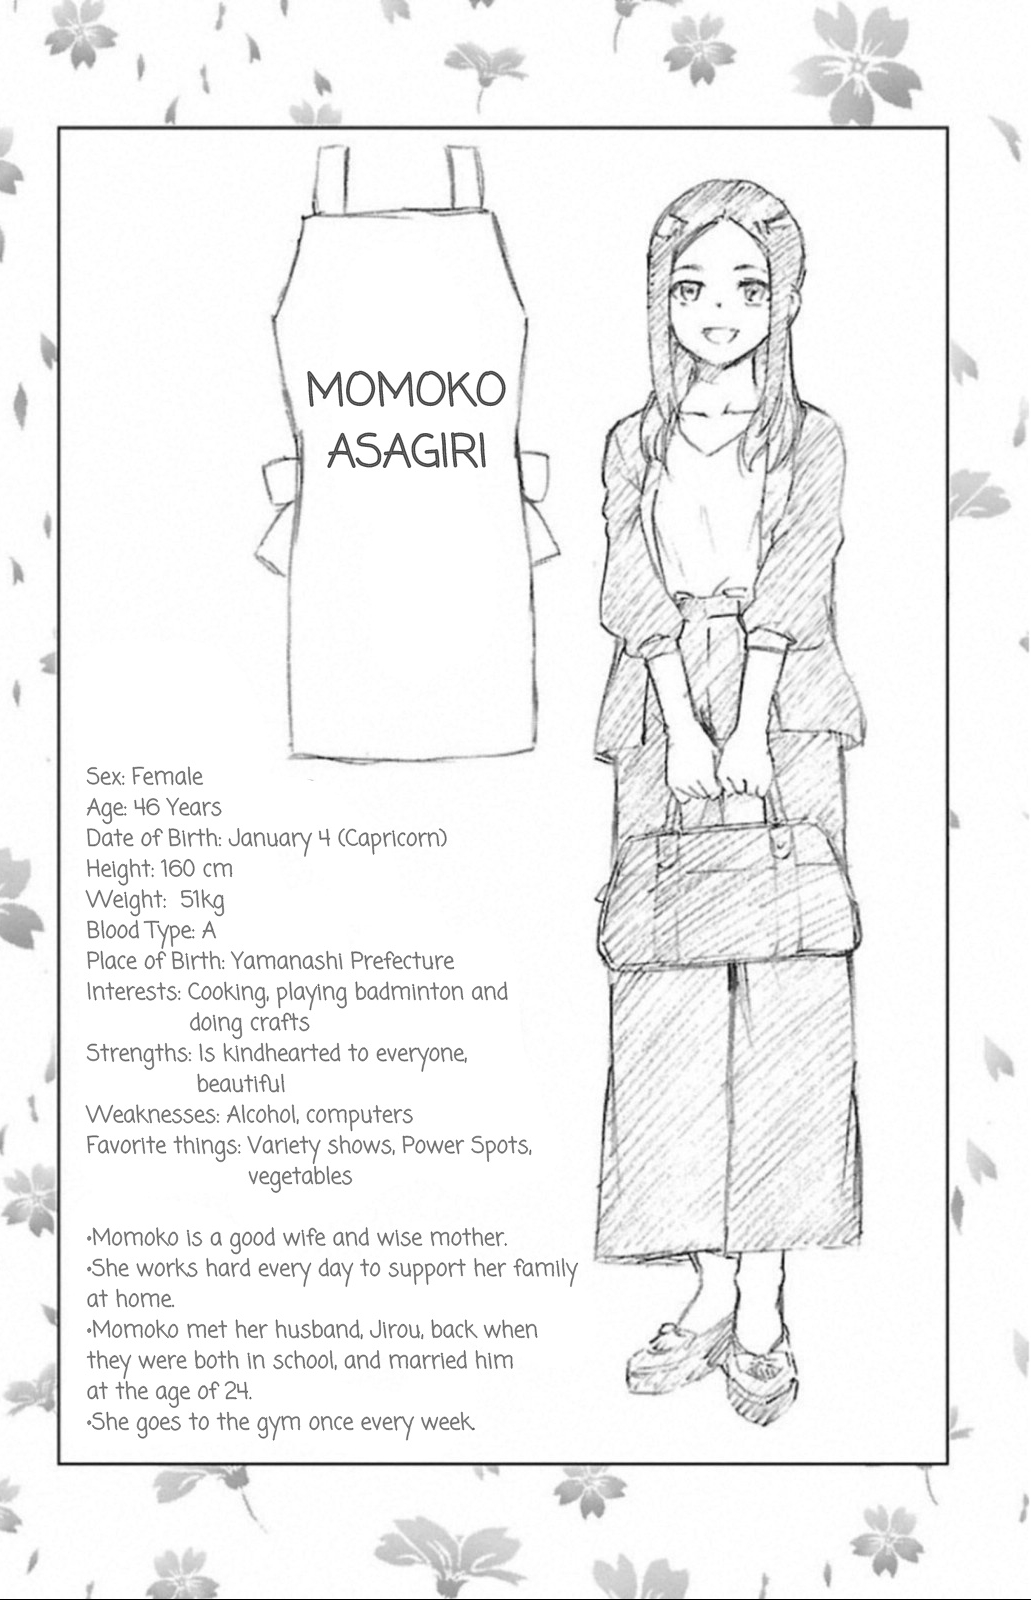 MOMOKO
ASAGIRI
Sex: Female
Age: 46 Years
Date of Birth: January 4 (Capricorn)
Height: 160 cm
Weight: 51kg
Blood Type: A
Place of Birth: Yamanashi Prefecture
Interests: Cooking, playing badminton and
doing crafts
Strengths: Is kindhearted to everyone,
beautiful
Weaknesses: Alcohol, computers
Favorite things: Variety shows, Power Spots,
vegetables
•Momoko is a good wife and wise mother.
•She works hard every day to support her family
at home.
•Momoko met her husband, Jirou, back when
they were both in school, and married him
at the age of 24.
•She goes to the gym once every week.